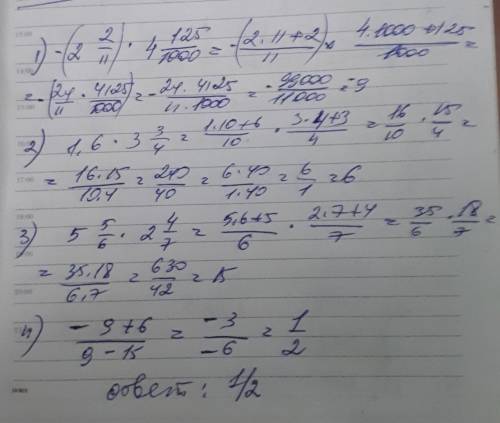 1) -(2 2/11) · 4 125/1000 = -(2·11+2/11) × 4·1000+125/1000 =
= -(24/11 · 4125/1000) = -24·4125/11·1000 = -99000/11000 = -9
2) 1,6 · 3 3/4 = 1·10+6/10 · 3·4+3/4 = 16/10 · 15/4 =
= 16·15/10·4 = 240/40 = 6·40/1·40 = 6/1 = 6
3) 5 5/6 · 2 4/7 = 5·6+5/6 · 2·7+4/7 = 35/6 · 18/7 =
= 35·18/6·7 = 630/42 = 15
4) -9+6/9-15 = -3/-6 = 1/2
ответ: 1/2